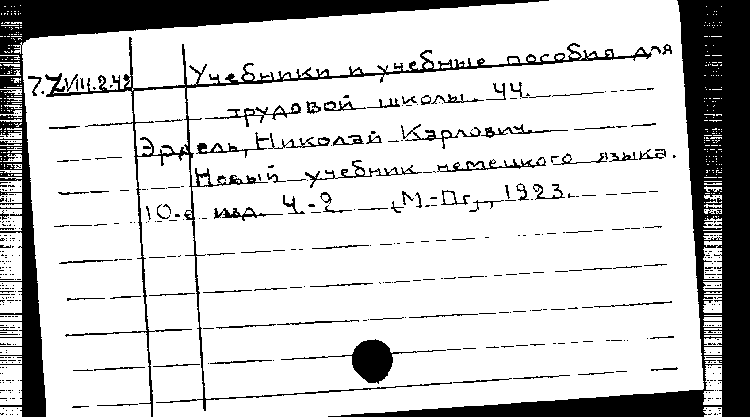 7.ZVIII.2.42 Учебники и учебные пособия для
трудовой школы. 44.
Эрдель, Николай Карлович.
Новый учебник немецкого языка.
10-е изд. Ч.-2. [М-Пг], 1923.